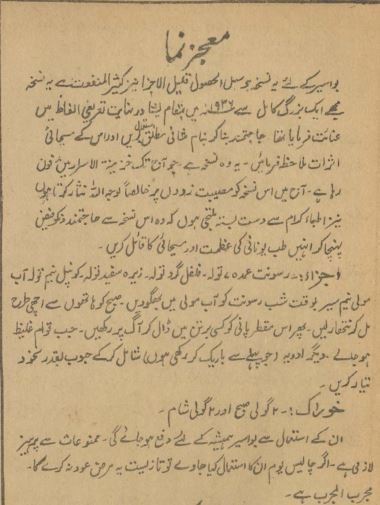 معجز نما
بواسیر کے لئے یہ نسخہ جو سہل الحصول قلیل الاجزا نیز کثیر المنفعت ہے یہ نسخہ
مجھے ایک بزرگ کامل سے ۱۹۳۶ء میں بمقام اور نہایت تعریفی الفاظ میں
عنایت فرمایا تھا حاجتمند بنا کر بنام شافی مطلق استعمال کریں اور اس کے مسیحائی
اثرات ملاحظہ فرمائیں۔ یہ وہ نسخہ ہے جو آج تک خزینۃ الاسرار میں مدفون
رہا ہے۔ آج میں اس نسخہ کو مصیبت زدوں پر خالصاً لوجہ اللہ نثار کرتا ہوں
نیز اطباء کرام سے دست بستہ ملتجی ہوں کہ وہ اس نسخہ سے حاجتمند کو فیض
پہنچا کر انہیں طب یونانی کی عظمت اور مسیحائی کا قائل کریں۔
اجزاء:۔ رسونت عمدہ ۴ تولہ۔ فلفل گرد تولہ۔ زیرہ سفید تولہ۔ کونپل نیم تولہ آب
مولی نیم سیر بوقت شب رسونت کو آب مولی میں بھگو دیں۔ صبح کو ہاتھوں سے اچھی طرح
مل کر نتھار لیں۔ پھر اس مقطر پانی کو کسی برتن میں ڈال کر آگ پر رکھیں۔ جب قوام غلیظ
ہو جائے۔ دیگر ادویہ (جو پہلے سے باریک کر رکھی ہوں) شامل کر کے حبوب بقدر نخود
تیار کریں۔
خوراک:۔ ۲ گولی صبح اور ۲ گولی شام۔
ان کے استعمال سے بواسیر ہمیشہ کے لئے دفع ہو جائے گی۔ ممنوعات سے پرہیز
لازمی ہے۔ اگر چالیس یوم ان کا استعمال کیا جاوے تو تا زیست یہ مرض عود نہ کرے گا۔
مجرب المجرب ہے۔